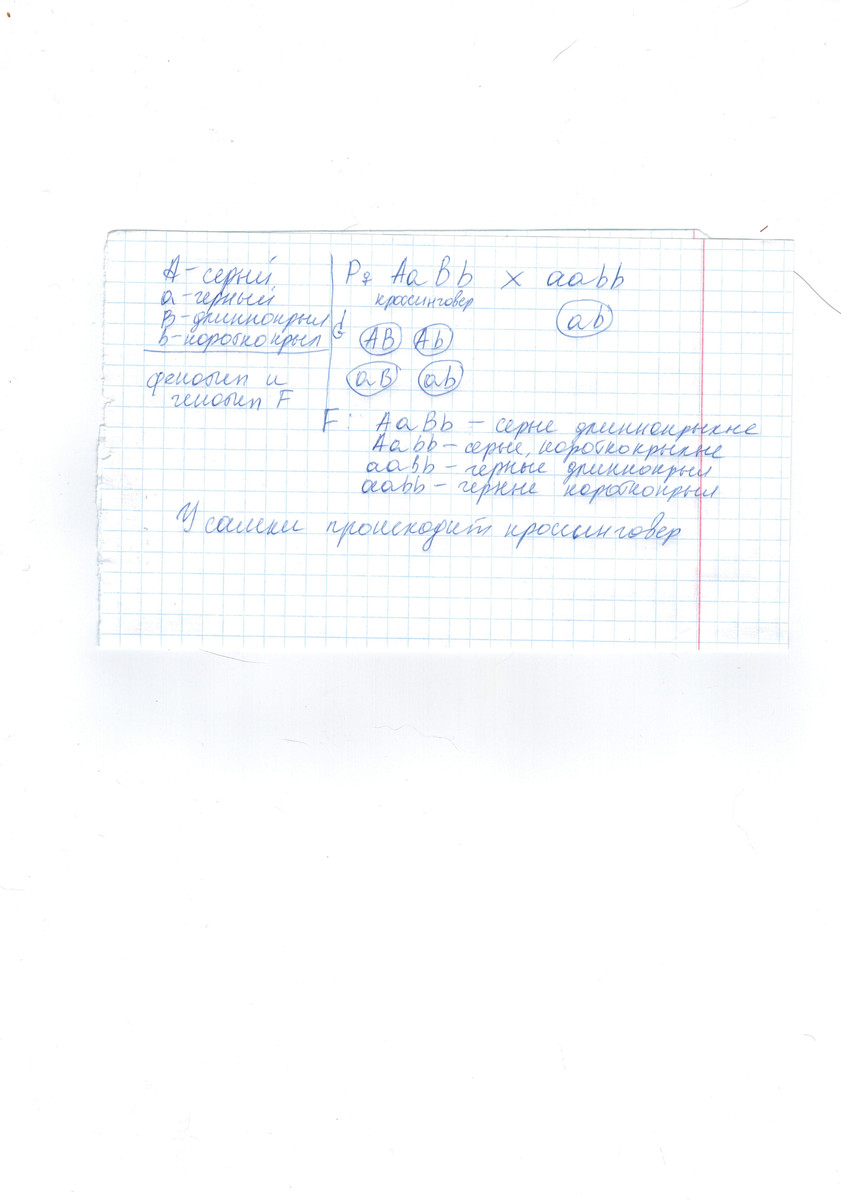 A - серый
a - черный
B - длиннокрыл
b - короткокрыл
фенотип и
генотип F
P♀ AaBb × aabb
кроссинговер
G AB Ab ab
aB ab
F: AaBb - серые длиннокрылые
Aabb - серые, короткокрылые
aaBb - черные длиннокрыл
aabb - черные короткокрыл
У самки происходит кроссинговер